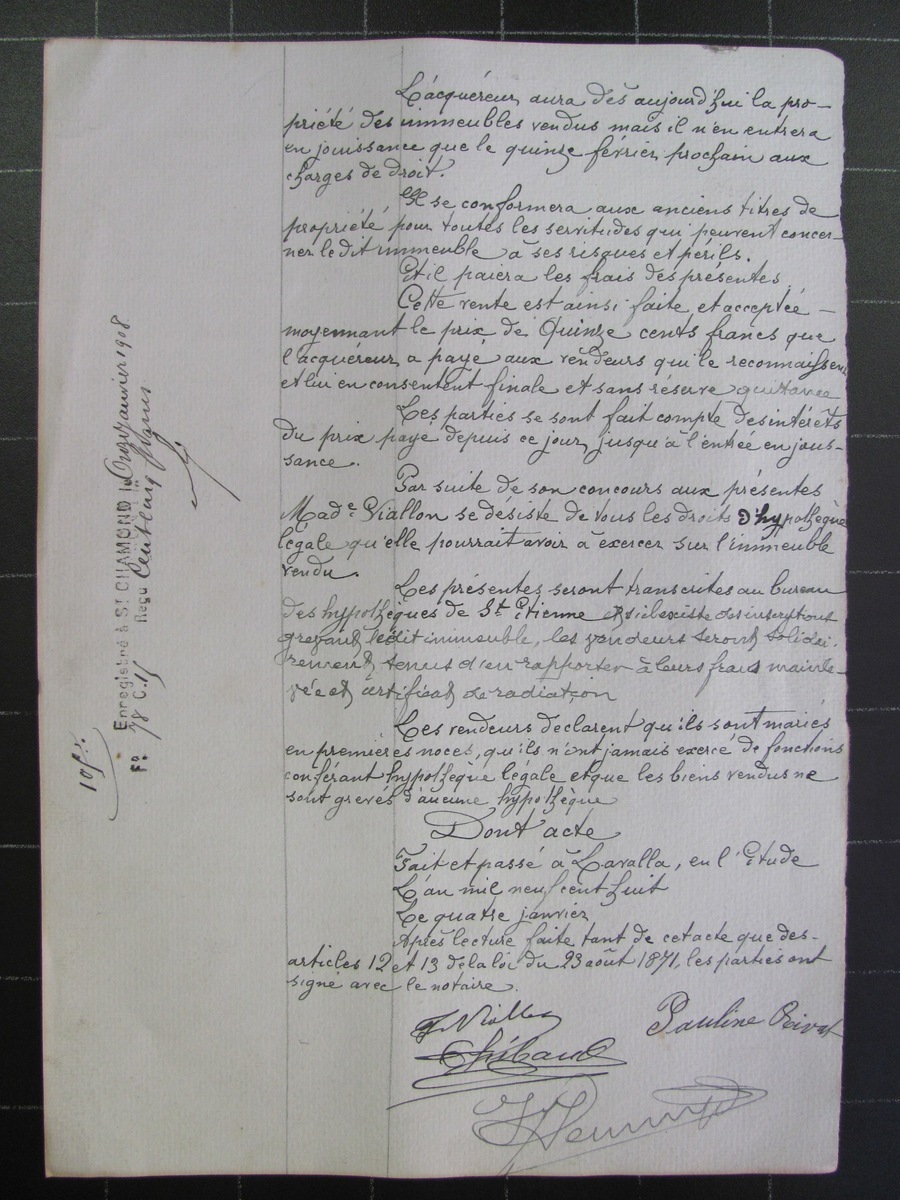 L'acquéreur aura dès aujourd'hui la pro-
priété des immeubles vendus mais il n'en entrera
en jouissance que le quinze février prochain aux
charges de droit.
Il se conformera aux anciens titres de
propriété pour toutes les servitudes qui peuvent concer-
ner ledit immeuble à ses risques et périls.
Et il paiera les frais des présentes
Cette vente est ainsi faite et acceptée
moyennant le prix de Quinze cents francs que
l'acquéreur a payé aux vendeurs qui le reconnaissent
et lui en consentent finale et sans réserve quittance
Les parties se sont fait compte des intérêts
du prix payé depuis ce jour jusqu'à l'entrée en jouis-
sance.
Par suite de son concours aux présentes
Made Viallon se désiste de tous les droits d'hypothèque
légale qu'elle pourrait avoir à exercer sur l'immeuble
vendu.
Les présentes seront transcrites au bureau
des hypothèques de St Etienne et s'il existe des inscriptions
grevant ledit immeuble, les vendeurs seront solidai-
rement tenus d'en rapporter à leurs frais mainle-
vée et certificat de radiation
Les vendeurs déclarent qu'ils sont mariés
en premières noces, qu'ils n'ont jamais exercé de fonctions
conférant hypothèque légale et que les biens vendus ne
sont grevés d'aucune hypothèque
Dont acte
Fait et passé à Lavalla, en l'Etude
L'an mil neuf cent huit
Le quatre janvier
Après lecture faite tant de cet acte que des
articles 12 et 13 de la loi du 23 août 1871, les parties ont
signé avec le notaire.
Pauline Rivat
J. Viallon
Thibaud
Enregistré à St CHAMOND le Onze janvier 1908
Fo 78 C. 15 Reçu Cent cinq francs
105f.